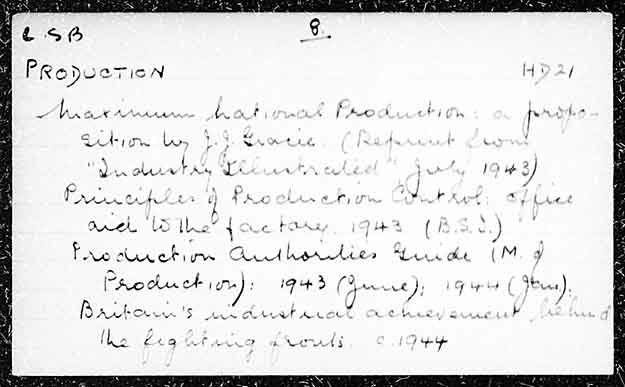 L.SB
8.
PRODUCTION
HD21
Maximum National Production: a propo-
sition by J.J. Gracie. (Reprint from
"Industry Illustrated", July 1943)
Principles of Production Control: office
aid to the factory. 1943 (B.S.I.)
Production Authorities Guide (M. of
Production): 1943 (June); 1944 (Jan).
Britain's industrial achievement behind
the fighting fronts. c.1944